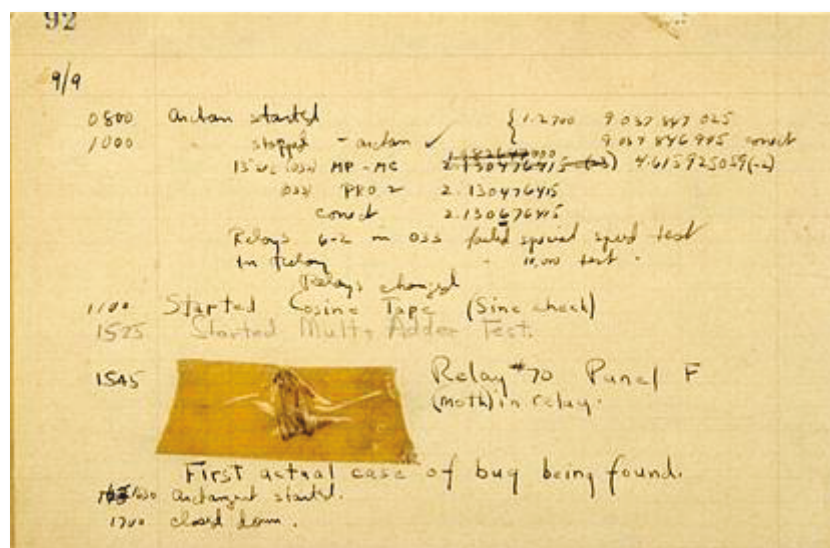 92
9/9
0800 arctan started { 1.2700 9.037 847 025
1000 stopped - arctan ✓ 9.037 846 995 correct
(032) MP - MC 2.130476415 4.615925059(-2)
(033) PRO 2 2.130476415
correct 2.130676415
Relays 6-2 in 033 failed special speed test
in relay 10,000 test.
Relays changed
1100 Started Cosine Tape (Sine check)
1525 Started Mult + Adder Test.
1545 Relay #70 Panel F
(moth) in relay.
First actual case of bug being found.
1630 arctangent started.
1700 closed down.